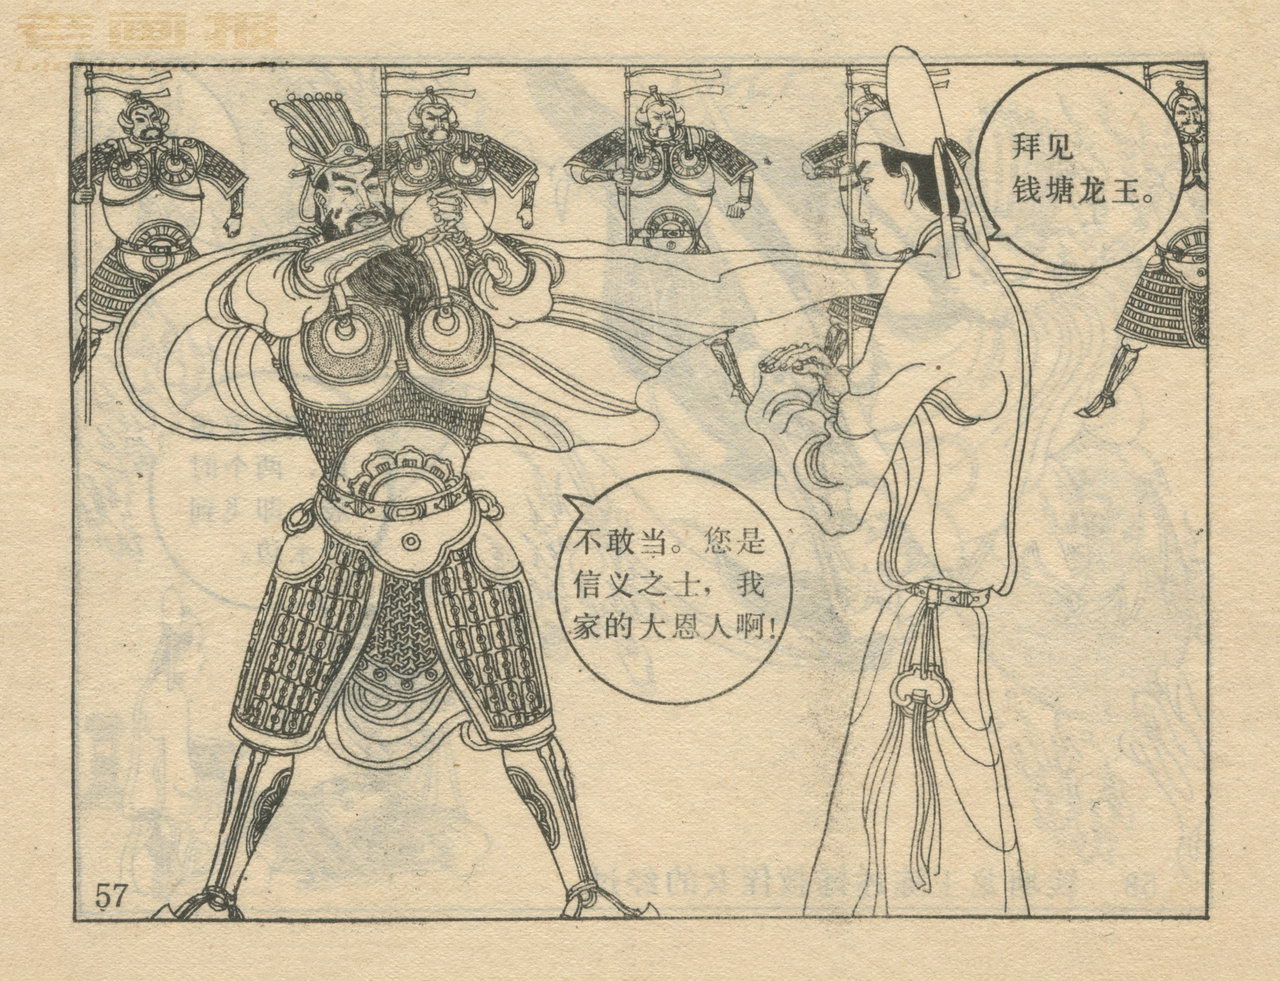 老画报
拜见
钱塘龙王。
不敢当。您是
信义之士，我
家的大恩人啊！
57